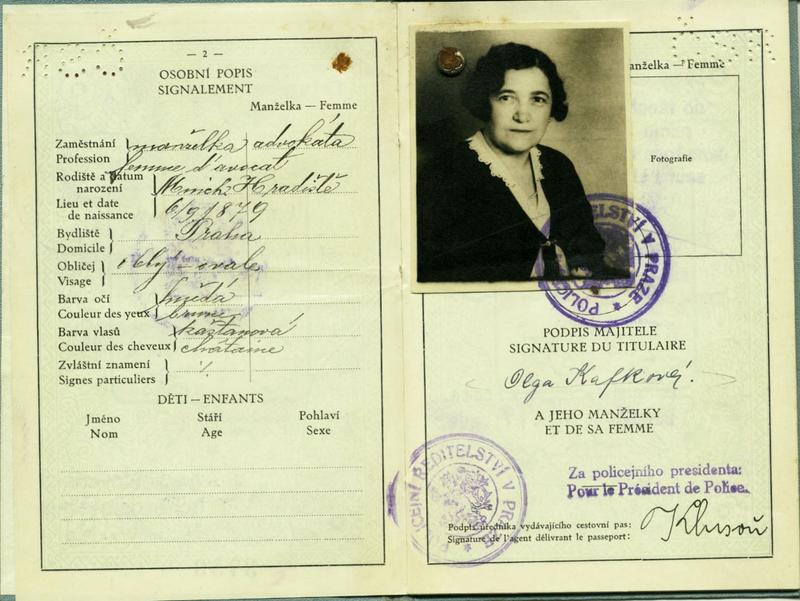 — 2 —
OSOBNÍ POPIS
SIGNALEMENT
Manželka — Femme
Zaměstnání manželka advokáta
Profession femme d'avocat
Rodiště a datum narození Mnich. Hradiště
Lieu et date de naissance 6/9 1879
Bydliště Praha
Domicile
Obličej oblý - ovale
Visage
Barva očí hnědá
Couleur des yeux brune
Barva vlasů kaštanová
Couleur des cheveux châtaine
Zvláštní znamení
Signes particuliers
DĚTI — ENFANTS
Jméno Stáří Pohlaví
Nom Age Sexe
anželka — Femme
Fotografie
POLICEJ ITELSTVÍ V PRAZE
PODPIS MAJITELE
SIGNATURE DU TITULAIRE
Olga Kafková.
A JEHO MANŽELKY
ET DE SA FEMME
Za policejního presidenta:
Pour le Président de Police.
POLICEJNÍ ŘEDITELSTVÍ V PRAZE
Podpis úředníka vydávajícího cestovní pas:
Signature de l'agent délivrant le passeport: